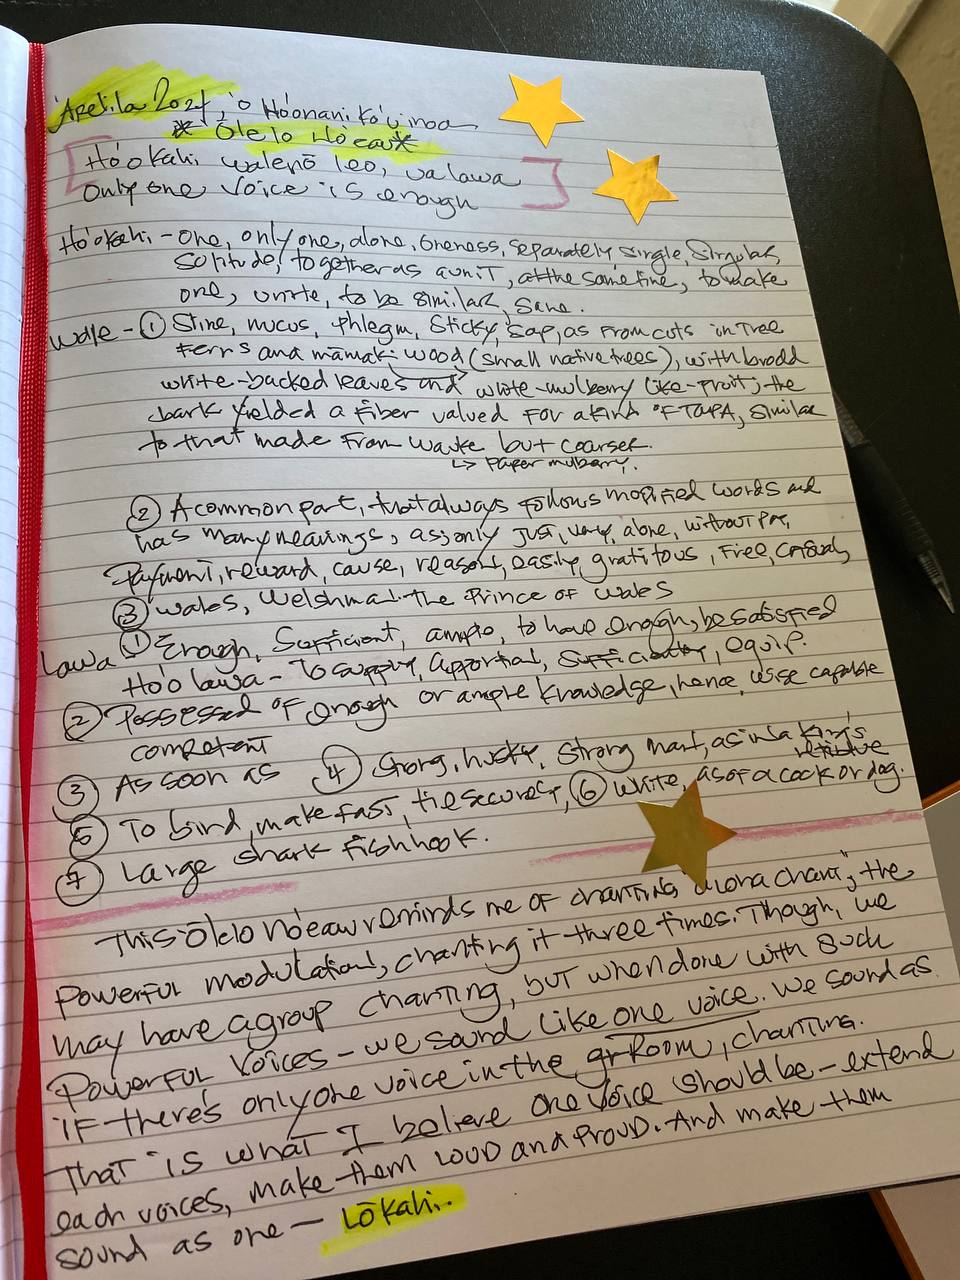 'Apelila 2021, 'o Hōonani Ko'u inoa
* Ōlelo No'eau *
[Ho'okahi wale nō leo, ua lawa
Only one voice is enough]
Ho'okahi - one, only one, alone, oneness, separately single, singular,
solitude, together as a unit, at the same time, to make
one, unite, to be similar, same.
wale - ① Slime, mucus, phlegm, sticky, sap, as from cuts in tree
ferns and māmaki wood (small native trees), with broad
white-backed leaves and white-mulberry like-fruit; the
bark yielded a fiber valued for a kind of TAPA, similar
to that made from wauke but coarser.
↳ Paper mulberry.
② A common part, that always follows modified words and
has many meanings, as; only just, very, alone, without pay,
payment, reward, cause, reason, easily gratitous, free, casual,
③ wales, Welshman. The Prince of Wales
Lawa ① Enough, sufficient, ample, to have enough, be satisfied
Ho'o lawa - To supply, apportion, sufficiently, equip.
② Possessed of enough or ample knowledge, hence, wise capable
competent
③ As soon as ④ Strong, husky, strong man, as in a King's
retinue
⑤ To bind, make fast, tie securely, ⑥ white, as of a cock or dog.
⑦ Large shark fishhook.
This Ōlelo No'eau reminds me of chanting 'aloha chant', the
powerful modulation, chanting it three times. Though, we
may have a group chanting, but when done with such
powerful voices - we sound like one voice. We sound as
if there's only one voice in the room, chanting.
That is what I believe one voice should be - extend
each voices, make them loud and proud. And make them
sound as one - Lōkahi.